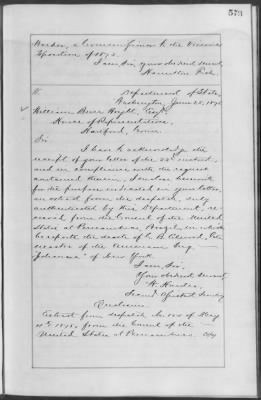 573
Warden, a Commissioner to the Vienna
Exposition of 1873.
I am, Sir, your obedient servant,
Hamilton Fish.
Department of State,
Washington, June 25, 1875.
William
House of Representatives,
Hartford, Conn.
Sir:
I have to acknowledge the
receipt of your letter of the 22d instant,
and in compliance with the request
contained therein, I enclose herewith
for the purpose indicated in your letter,
an extract from the despatch, duly
authenticated by this Department, re-
ceived from the Consul of the United
States at Pernambuco, Brazil, in which
he reports the death of
of the American
"Johanna" of New York.
I am, Sir,
Your obedient servant,
W. Hunter,
Second Assistant Secretary
Enclosure.
Extract from despatch No. of May
1875, from the Consul of the
United States at Pernambuco. Copy